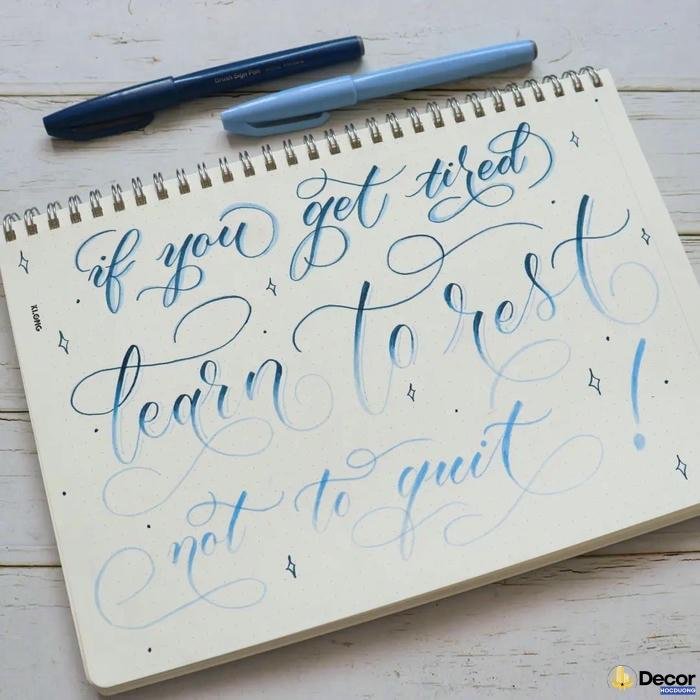 Brush Sign Pen
if you get tired
learn to rest
not to quit!
XLONG
Decor
HOCDUONG